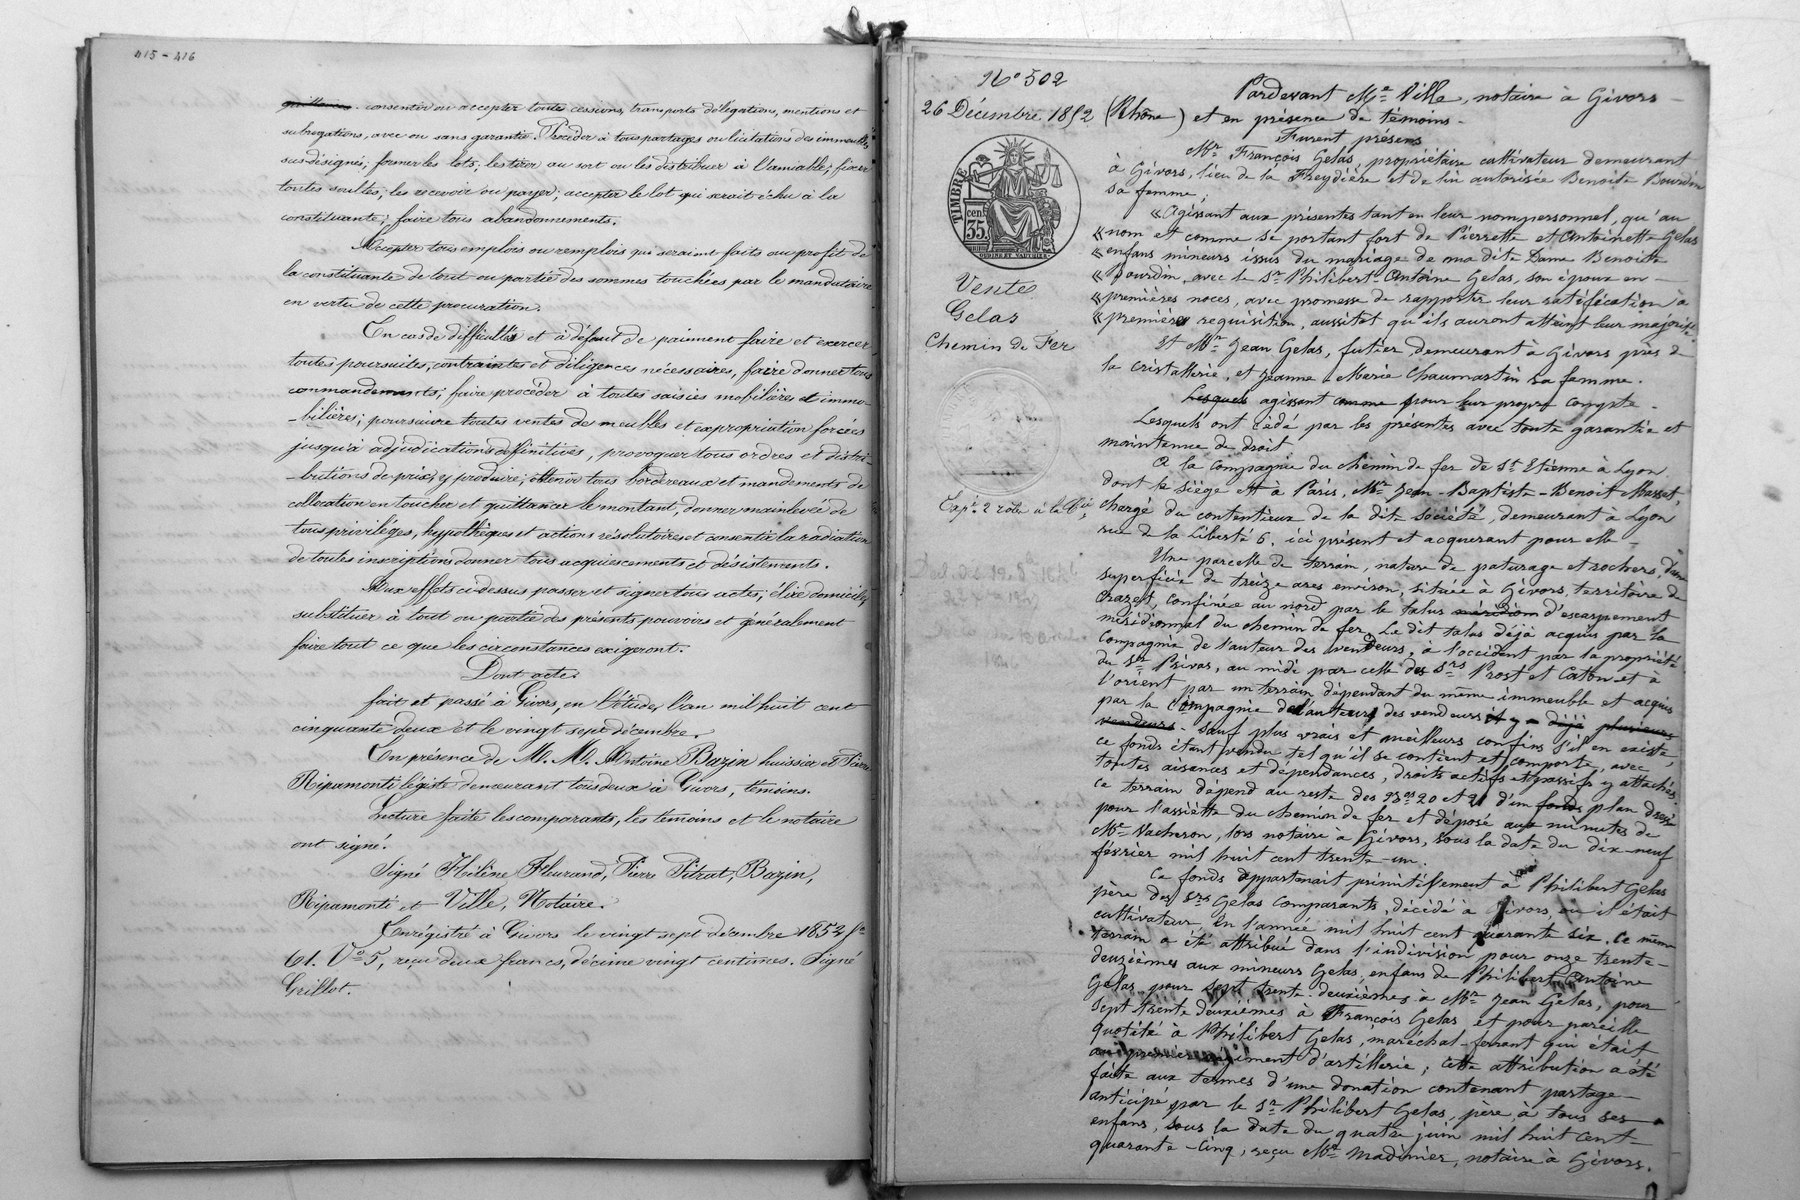 415 - 416
quittances. consentir ou accepter toutes cessions, transports délégations, mentions et
subrogations, avec ou sans garantie. Procéder à tous partages ou licitations des immeubles
sus désignés; former les lots, les tirer au sort ou les distribuer à l'amiable; fixer
toutes soultes; les recevoir ou payer; accepter le lot qui serait échu à la
constituante; faire tous abandonnements.
Accepter tous emplois ou remplois qui seraient faits au profit de
la constituante de tout ou partie des sommes touchées par le mandataire
en vertu de cette procuration.
En cas de difficultés et à défaut de paiment faire et exercer
toutes poursuites, contraintes et diligences nécessaires, faire donner tous
commandements; faire procéder à toutes saisies mobilières et immo-
-bilières; poursuivre toutes ventes de meubles et expropriation forcées
jusqu'à adjudications définitives, provoquer tous ordres et distri-
-butions de prix, y produire; obtenir tous bordereaux et mandements de
collocation en toucher et quittancer le montant, donner mainlevée de
tous privilèges, hypothèques et actions résolutoires et consentir la radiation
de toutes inscriptions donner tous acquiescements et désistements.
Aux effets ci-dessus passer et signer tous actes; élire domicile,
substituer à tout ou partie des présents pouvoirs et généralement
faire tout ce que les circonstances exigeront.
Dont acte.
fait et passé à Givors, en l'étude, l'an mil huit cent
cinquante deux et le vingt sept décembre.
En présence de M. M. Antoine Bazin huissier et Pierre
Ripamonti légiste demeurant tous deux à Givors, témoins.
Lecture faite les comparants, les témoins et le notaire
ont signé.
Signé Hélène Fleurand, Pierre Pitrat, Bazin,
Ripamonti et Ville, Notaire.
Enregistré à Givors le vingt sept décembre 1852 fo
61. Vo 5, reçu deux francs, décime vingt centimes. Signé
Grillot.
No 502
26 Décembre 1852
TIMBRE
35 cen
Vente
Gelas
Chemin De Fer
Expn 2 rôle à la Cie
Pardevant Me Ville, notaire à Givors
(Rhône) et en présence de témoins.
Furent présens
Mr François Gelas, propriétaire cultivateur demeurant
à Givors, lieu de la Freydière et de lui autorisée Benoite Bourdin
sa femme,
«Agissant aux présentes tant en leur nom personnel, qu'au
«nom et comme se portant fort de Pierrette et Antoinette Gelas
«enfans mineurs issus du mariage de ma dite Dame Benoite
«Bourdin, avec le Sr Philibert Antoine Gelas, son époux en
«premières noces, avec promesse de rapporter leur ratification à
«première requisition, aussitot qu'ils auront atteint leur majorité
Et Mr Jean Gelas, futier, demeurant à Givors près de
la cristallerie, et Jeanne Marie Chaumartin sa femme.
Lesquels agissant comme pour leur propre compte.
Lesquels ont cédé par les présentes avec toute garantie et
maintenue de droit
A la Compagnie du chemin de fer de St Etienne à Lyon
dont le siège est à Paris, Mr Jean-Baptiste-Benoit Masset,
chargé du contentieux de la dite société, demeurant à Lyon
rue de la Liberté 6, ici présent et acquerant pour elle
Une parcelle de terrain, nature de paturage et rochers, d'une
superficie de treize ares environ, située à Givors, territoire de
Chazet, confinée au nord par le talus méridion d'escarpement
méridionnal du chemin de fer, le dit talus déjà acquis par la
Compagnie de l'auteur des vendeurs, à l'occident par la propriété
du Sr Privas, au midi par celle des Srs Prost et Caton et à
l'orient par un terrain dépendant du même immeuble et acquis
par la Compagnie de l'auteur des vendeurs il y a déjà plusieurs
vendeurs. sauf plus vrais et meilleurs confins s'il en existe,
ce fonds étant vendu tel qu'il se contient et comporte, avec
toutes aisances et dépendances, droits actifs et passifs y attachés.
Ce terrain dépend au reste des Nos 20 et 21 d'un fonds plan dressé
pour l'assiette du chemin de fer et déposé aux minutes de
Me Vacheron, lors notaire à Givors, sous la date du dix-neuf
février mil huit cent trente-un.
Ce fonds appartenait primitivement à Philibert Gelas
père des Srs Gelas comparants, décédé à Givors, où il était
cultivateur, en l'année mil huit cent quarante six. Ce même
terrain a été attribué dans l'indivision pour onze trente-
deuxièmes aux mineurs Gelas, enfans de Philibert Antoine
Gelas, pour sept trente-deuxièmes à Mr Jean Gelas, pour
sept trente deuxièmes à François Gelas et pour pareille
quotité à Philibert Gelas, maréchal-ferrant qui était
au régiment d'artillerie; cette attribution a été
faite aux termes d'une donation contenant partage
anticipé par le Sr Philibert Gelas, père à tous ses
enfans, sous la date du quatre juin mil huit cent
quarante-cinq, reçu Me Madinier, notaire à Givors.